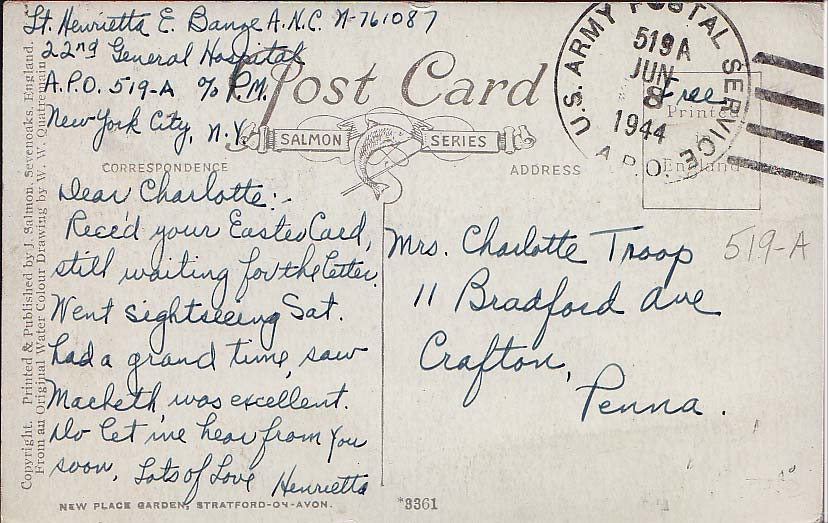 Lt. Henrietta E. Bange A.N.C. N-761087
22nd General Hospital
A.P.O. 519-A % P.M.
New York City, N.Y.
Post Card
SALMON SERIES
CORRESPONDENCE
ADDRESS
U.S. ARMY POSTAL SERVICE
519A
JUN
8
1944
A.P.O.
Free
Printed
in
England
Dear Charlotte:-
Rece'd your Easter Card,
still waiting for the letter.
Went sightseeing Sat.
had a grand time, saw
Macbeth, was excellent.
Do let me hear from you
soon. Lots of Love Henrietta
Mrs. Charlotte Troop
11 Bradford Ave
Crafton,
Penna.
519-A
Copyright. Printed & Published by J. Salmon, Sevenoaks, England.
From an Original Water Colour Drawing by W. W. Quatremain
NEW PLACE GARDEN, STRATFORD-ON-AVON.
*3361